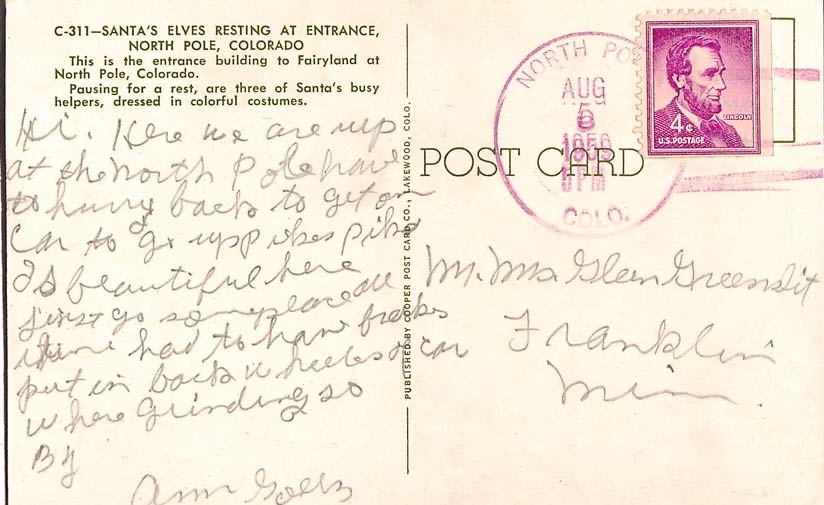 C-311—SANTA'S ELVES RESTING AT ENTRANCE,
NORTH POLE, COLORADO
This is the entrance building to Fairyland at
North Pole, Colorado.
Pausing for a rest, are three of Santa's busy
helpers, dressed in colorful costumes.
Hi. Here we are up
at the North Pole have
to hurry back to get on
car to go up pikes pike
Is beautiful here
just go someplace all
time had to have freaks
put in back wheels of car
where grinding so
By
Ann
PUBLISHED BY COOPER POST CARD CO., LAKEWOOD, COLO.
POST CARD
NORTH PO
AUG
5
PM
COLO.
LINCOLN
4¢
U.S. POSTAGE
Mr. Mrs. Glen
Franklin
Minn.